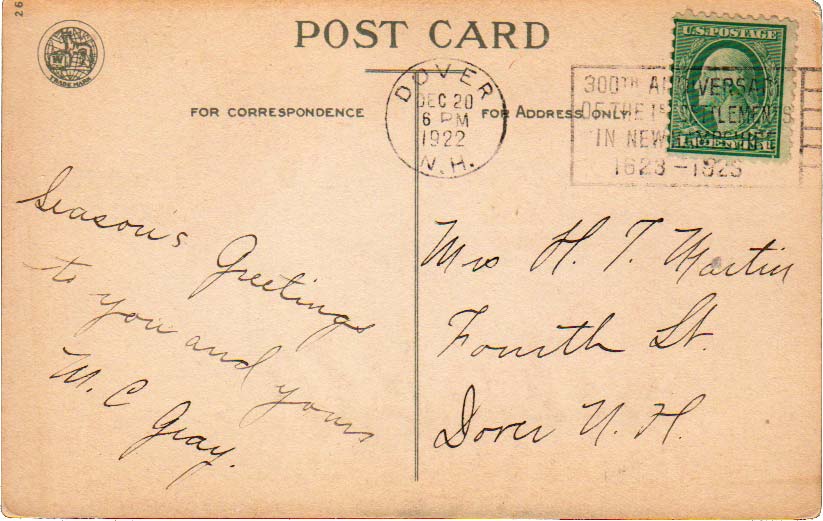 26
POST CARD
TRADE MARK
FOR CORRESPONDENCE
FOR ADDRESS ONLY
DOVER
DEC 20
6 PM
1922
N.H.
U.S. POSTAGE
300TH
OF THE 1
IN NEW
1623-1923
Season's Greetings
to you and yours
M. C. Gray.
Mrs H. T. Martin
Fourth St.
Dover N. H.